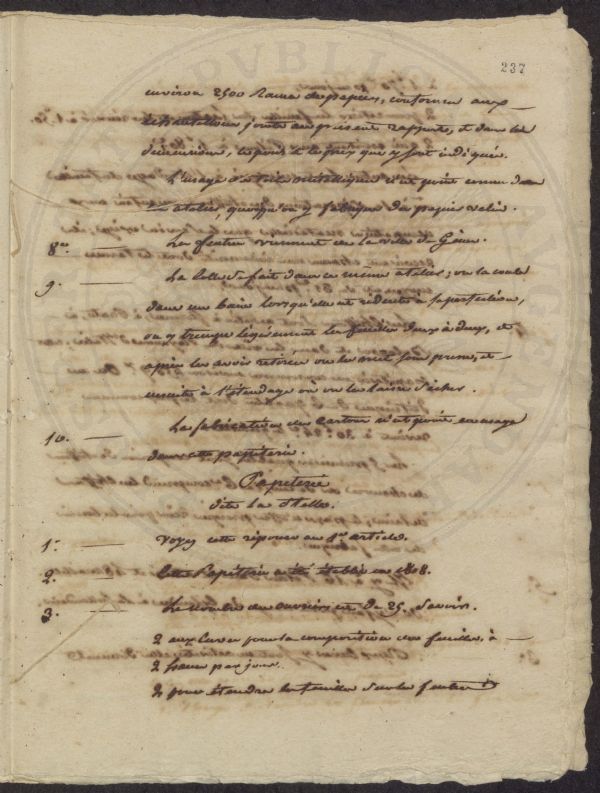 237
environ 2500 Rames de papiers, conformes aux
échantillons joints au présent rapport, et dans les
dimensions, les poids et les prix que y sont indiqués.
L'usage métallique n'est point connu dans
atelier, quoiqu'on y fabrique du papier velin.
8° Les feutres viennent de la ville de Gênes.
9. — La Colle se fait dans ce même atelier; on la coule
dans un bain lorsqu'elle est réduite à sa perfection,
on y trempe légèrement les feuilles deux à deux, et
après les avoir retirées on les met sous presse, et
ensuite à l'étendage où on les laisse sécher.
10. — La fabrication des Cartons n'est point en usage
dans cette papeterie.
Papeterie
dite la Stella.
1° — Voyez cette réponse au 1er article.
2. — Cette Papéterie a été établie en 1808.
3. — Le nombre des ouvriers est de 25. Savoir.
2 aux Cuves pour la composition des feuilles, à
2 francs par jour.
2 pour étendre les feuilles sur les feutres à